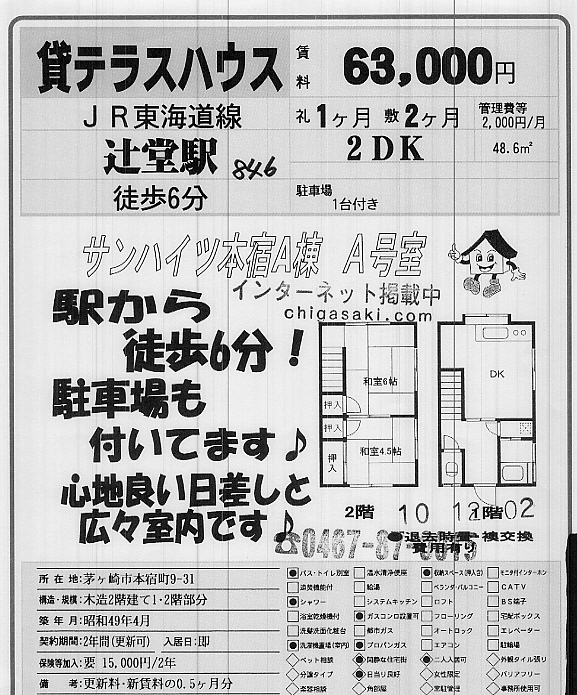 貸テラスハウス
賃料 63,000円
JR東海道線
礼 1ヶ月 敷 2ヶ月
管理費等
2,000円/月
辻堂駅 846
2DK
48.6㎡
徒歩6分
駐車場
1台付き
サンハイツ本宿A棟 A号室
インターネット掲載中
chigasaki.com
駅から
徒歩6分!
駐車場も
付いてます♪
心地良い日差しと
広々室内です♪
和室6帖
押入
押入
和室4.5帖
押入
DK
2階
1階
10 12 02
●退去時畳・襖交換
費用有り
☎0467-87-
所在地:茅ヶ崎市本宿町9-31
構造・規模:木造2階建て1・2階部分
築年月:昭和49年4月
契約期間:2年間(更新可) 入居日:即
保険等加入:要 15,000円/2年
備考:更新料・新賃料の0.5ヶ月分
バス・トイレ別室 温水洗浄便座 収納スペース(押入含) モニタ付インターホン
追焚機能付 給湯 ベランダ・バルコニー CATV
シャワー システムキッチン ロフト BS端子
浴室乾燥機付 ガスコンロ設置可 フローリング 宅配ボックス
洗髪洗面化粧台 都市ガス オートロック エレベーター
洗濯機置場(室内) プロパンガス エアコン 駐輪場
ペット相談 閑静な住宅街 二人入居可 外観タイル張り
分譲タイプ 日当り良好 女性限定 バリアフリー
楽器相談 角部屋 常駐管理 事務所使用可